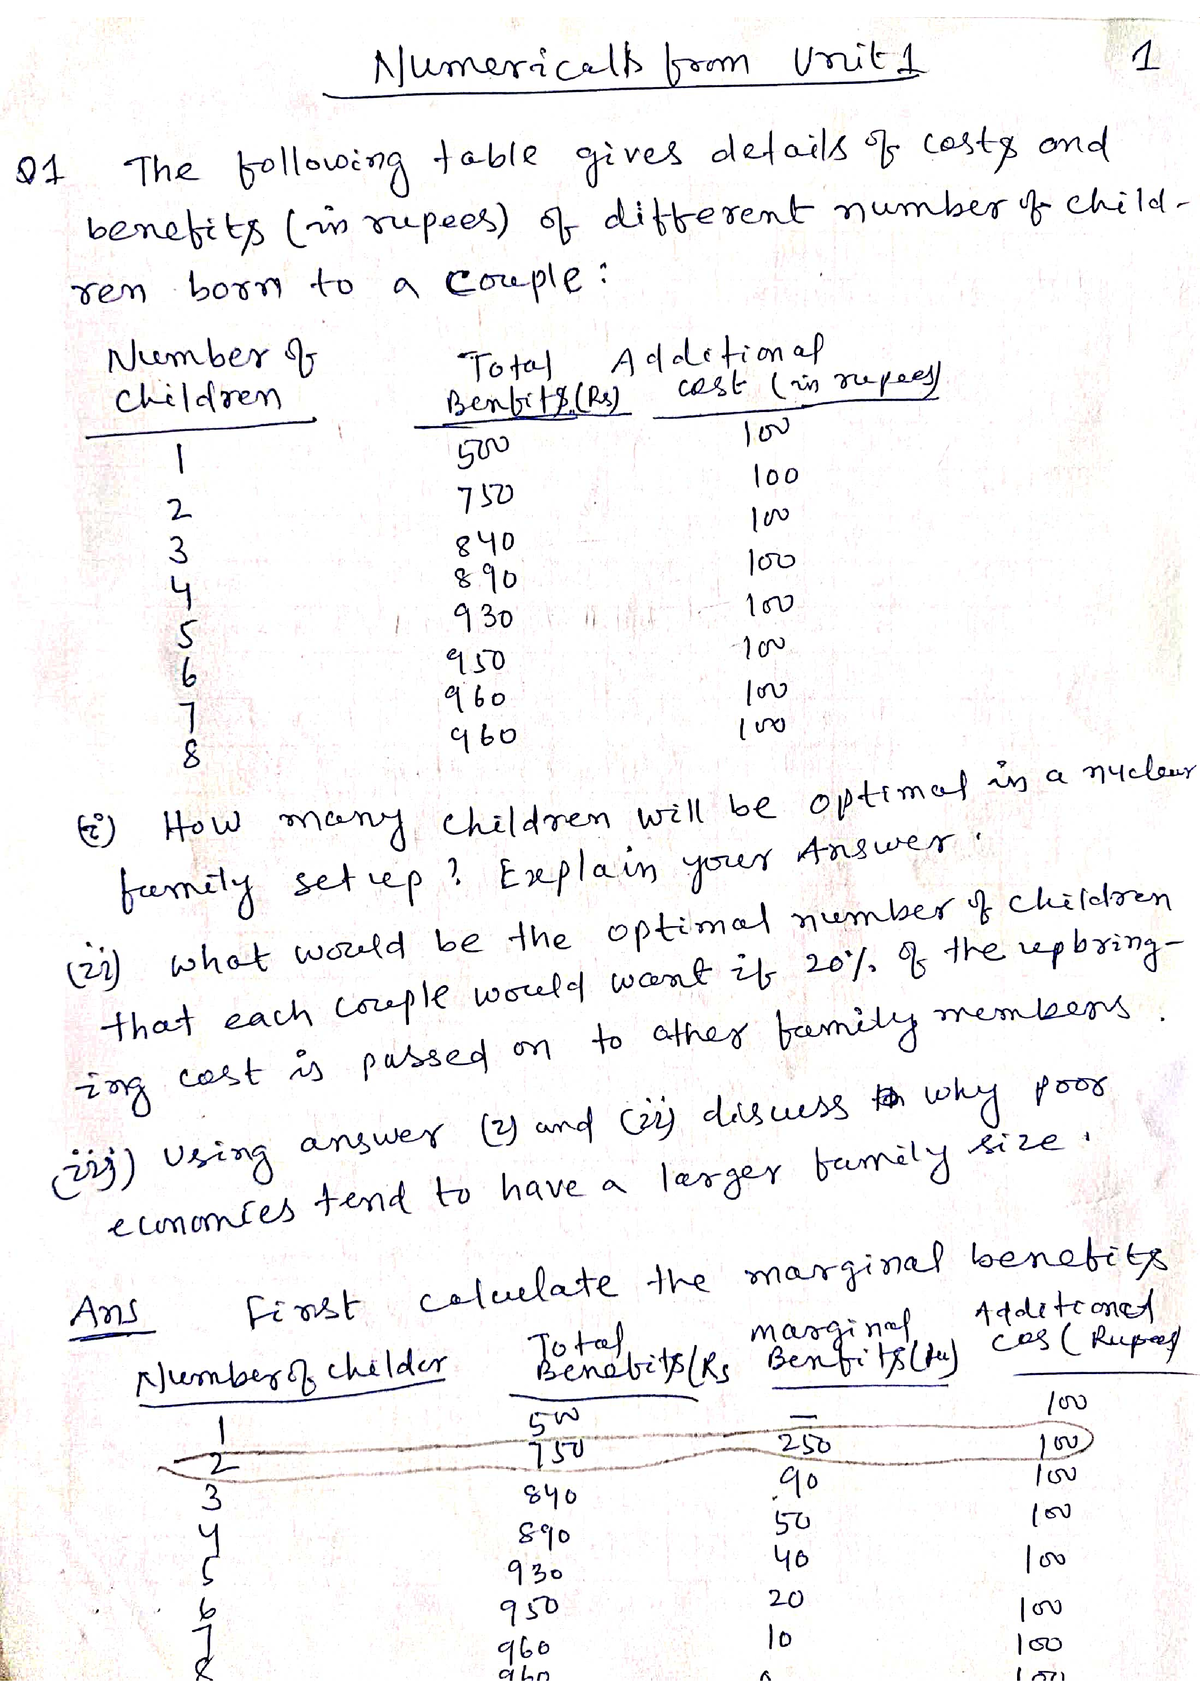 Numericals from Unit 1 1
Q1 The following table gives details of costs and
benefits (in rupees) of different number of child-
ren born to a couple:
Number of Total Additional
children Benfits (Rs) cost (in rupees)
1 500 100
2 750 100
3 840 100
4 890 100
5 930 100
6 950 100
7 960 100
8 960 100
(i) How many children will be optimal in a nuclear
family set up? Explain your Answer.
(ii) what would be the optimal number of children
that each couple would want if 20% of the upbring-
ing cost is passed on to other family members.
(iii) Using answer (i) and (ii) discuss why poor
economies tend to have a larger family size.
Ans First calculate the marginal benefits
Total marginal Additional
Number of childer Benebits (Rs Benfits (Rs) cos (Rupees)
1 500 — 100
2 750 250 100
3 840 90 100
4 890 50 100
5 930 40 100
6 950 20 100
7 960 10 100
8 960 0 100